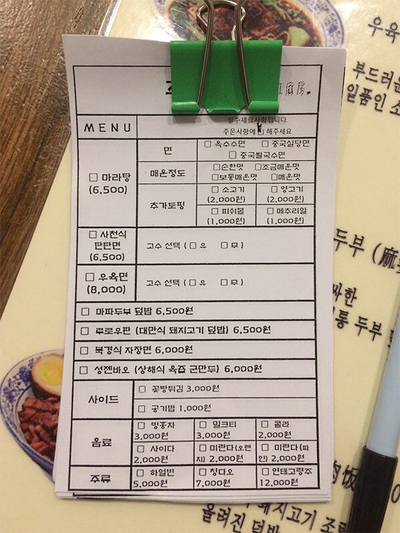 麻房.
우육
부드러운
일품인 소
필수체크사항입니다.
주문사항에 해주세요
MENU
면 □ 옥수수면 □ 중국실당면
□ 중국쌀국수면
□ 마라탕
(6,500)
매운정도 □순한맛 □조금매운맛
□보통매운맛 □매운맛
추가토핑 □ 소고기 □ 양고기
(2,000원) (2,000원)
□ 피쉬볼 □ 메추리알
(1,000원) (1,000원)
□ 사천식
탄탄면
(6,500)
고수 선택 (□ 유 □ 무)
□ 우육면
(8,000)
고수 선택 (□ 유 □ 무)
□ 마파두부 덮밥 6,500원
□ 루로우판 (대만식 돼지고기 덮밥) 6,500원
□ 북경식 자장면 6,000원
□ 성젠바오 (상해식 육즙 군만두) 6,000원
사이드 □ 꽃빵튀김 3,000원
□ 공기밥 1,000원
음료 □ 빙홍차 □ 밀크티 □ 콜라
3,000원 3,000원 2,000원
□ 사이다 □ 미란다(오렌 □ 미란다(파
2,000원 지) 2,000원 인) 2,000원
주류 □ 하얼빈 □ 칭다오 □ 연태고량주
5,000원 7,000원 12,000원
두부 (麻
싸한
통 두부
돼지고기 조
올려진 덮밥